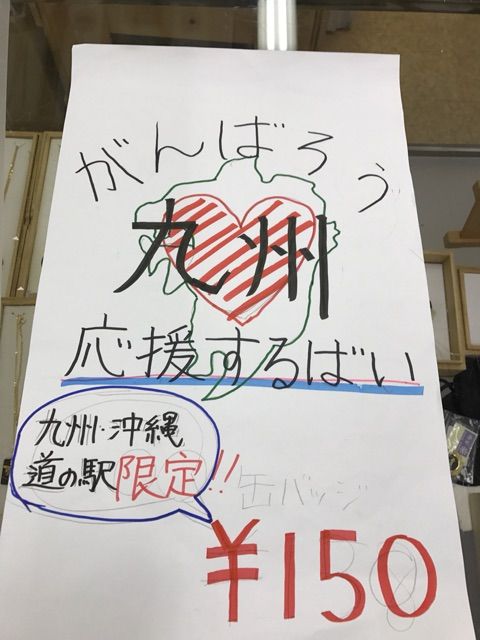 がんばろう
九州
応援するばい
九州・沖縄
道の駅限定!!
缶バッジ
¥150